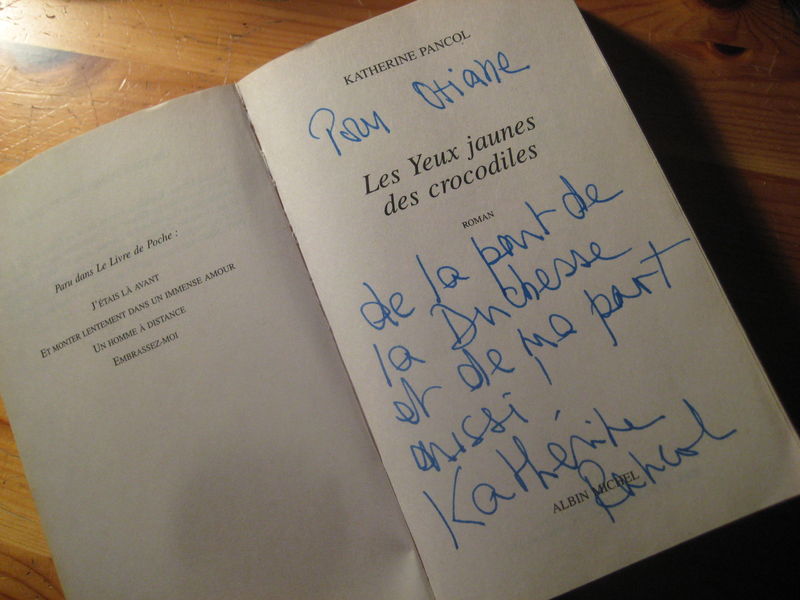 Paru dans Le Livre de Poche :
J'ÉTAIS LÀ AVANT
ET MONTER LENTEMENT DANS UN IMMENSE AMOUR
UN HOMME À DISTANCE
EMBRASSEZ-MOI
KATHERINE PANCOL
Pour Oriane
Les Yeux jaunes
des crocodiles
ROMAN
de la part de
la Duchesse
et de ma part
aussi !
Kathérine
Pancol
ALBIN MICHEL